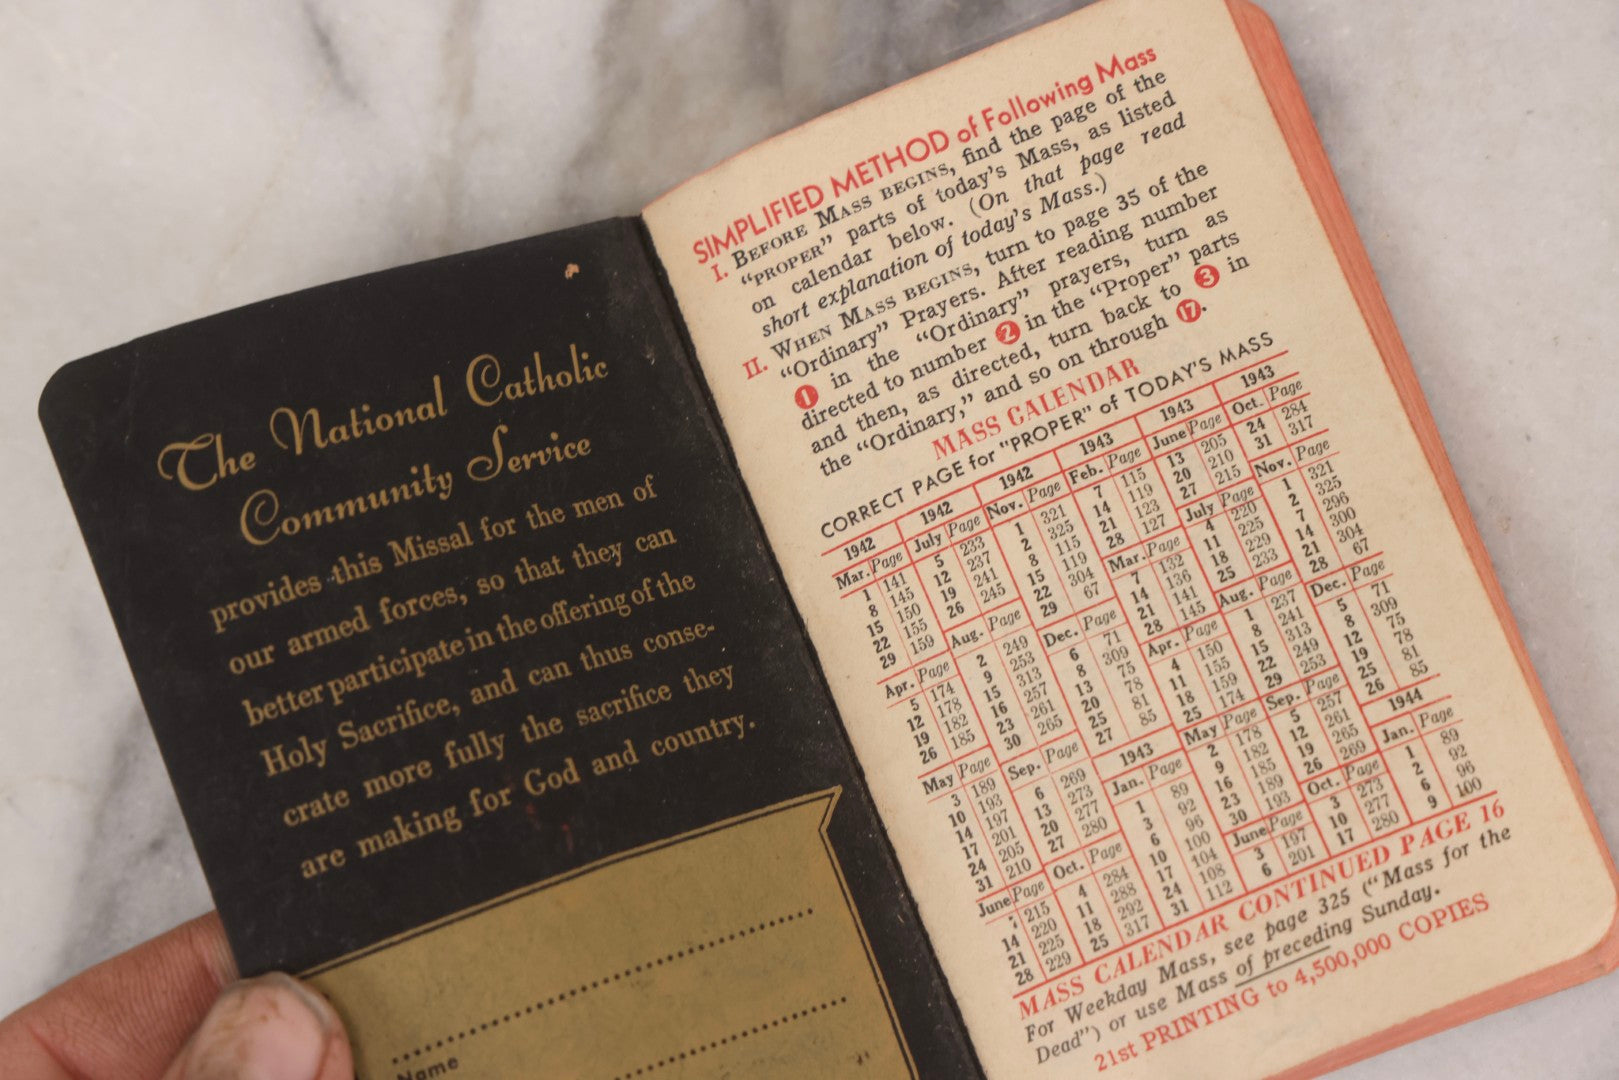 The National Catholic
Community Service
provides this Missal for the men of
our armed forces, so that they can
better participate in the offering of the
Holy Sacrifice, and can thus conse-
crate more fully the sacrifice they
are making for God and country.
Name
SIMPLIFIED METHOD of Following Mass
I. BEFORE MASS BEGINS, find the page of the
"PROPER" parts of today's Mass, as listed
on calendar below. (On that page read
short explanation of today's Mass.)
II. WHEN MASS BEGINS, turn to page 35 of the
"Ordinary" Prayers. After reading number
1 in the "Ordinary" prayers, turn as
directed to number 2 in the "Proper" parts
and then, as directed, turn back to 3 in
the "Ordinary," and so on through 17.
MASS CALENDAR
CORRECT PAGE for "PROPER" of TODAY'S MASS
1942
Mar. Page
1 141
8 145
15 150
22 155
29 159
Apr. Page
5 174
12 178
19 182
26 185
May Page
3 189
10 193
14 197
17 201
24 205
31 210
June Page
215
14 220
21 225
28 229
1942
July Page
5 233
12 237
19 241
26 245
Aug. Page
2 249
9 253
15 313
16 257
23 261
30 265
Sep. Page
6 269
13 273
20 277
27 280
Oct. Page
4 284
11 288
18 292
25 317
1942
Nov. Page
1 321
2 325
8 115
15 119
22 304
29 67
Dec. Page
6 71
8 309
13 75
20 78
25 81
27 85
1943
Jan. Page
1 89
3 92
6 96
10 100
17 104
24 108
31 112
1943
Feb. Page
7 115
14 119
21 123
28 127
Mar. Page
7 132
14 136
21 141
28 145
Apr. Page
4 150
11 155
18 159
25 174
May Page
2 178
9 182
16 185
23 189
30 193
June Page
3 197
6 201
1943
June Page
13 205
20 210
27 215
July Page
4 220
11 225
18 229
25 233
Aug. Page
1 237
8 241
15 313
22 249
29 253
Sep. Page
5 257
12 261
19 265
26 269
Oct. Page
3 273
10 277
17 280
1943
Oct. Page
24 284
31 317
Nov. Page
1 321
2 325
7 296
14 300
21 304
28 67
Dec. Page
5 71
8 309
12 75
19 78
25 81
26 85
1944
Jan. Page
1 89
2 92
6 96
9 100
MASS CALENDAR CONTINUED PAGE 16
For Weekday Mass, see page 325 ("Mass for the
Dead") or use Mass of preceding Sunday.
21st PRINTING to 4,500,000 COPIES